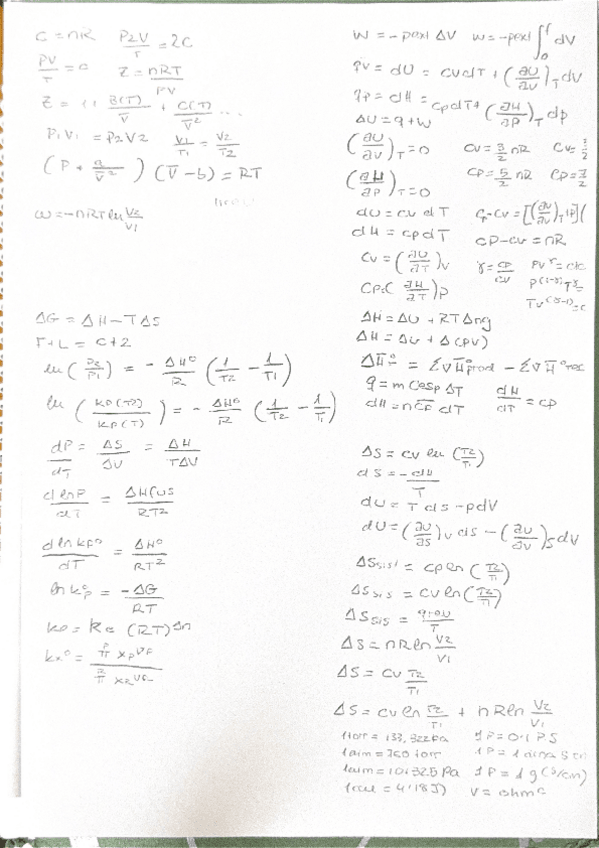 C = nR   P2V/T = 2C
PV/T = c   Z = nRT/PV
Z = (1 B(T)/V̅ + C(T)/V̅² ...
P1V1 = P2V2   V1/T1 = V2/T2
(P + a/V̅²) (V̅ - b) = RT
w = -nRT ln V2/V1
ΔG = ΔH - TΔS
F + L = C + 2
ln (P2/P1) = - ΔHº/R (1/T2 - 1/T1)
ln (KP(T2)/KP(T)) = - ΔHº/R (1/T2 - 1/T1)
dP/dT = ΔS/ΔV = ΔH/TΔV
d lnP/dT = ΔH/RT2
d ln kpº/dT = ΔHº/RT²
ln kºp = -ΔG/RT
kp = kc (RT)^Δn
kxº =
W = -pext ΔV   w = -pext ∫ dV
qv = dU = cv dT + (∂U/∂V)T dV
qp = dH = cp dT + (∂H/∂P)T dp
ΔU = q + w
(∂U/∂V)T = 0   CV = 3/2 nR   CV =
(∂H/∂P)T = 0   CP = 5/2 nR   CP = 7/2
dU = cv dT   Cp - CV = [(∂U/∂V)T + P](
dH = cp dT   CP - CV = nR
CV = (∂U/∂T)V   γ = CP/CV   PV^γ = cte
CP = (∂H/∂T)P   P^(1-γ) T^γ =
TV^(γ-1) = c
ΔH = ΔU + RTΔng
ΔH = ΔU + Δ(PV)
ΔH̅º = Σν H̅º prod - Σν H̅º reac
q = m Cesp ΔT   dH/dT = CP
dH = n C̅P dT
ΔS = CV ln (T2/T1)
dS = -dH/T
dU = T dS - pdV
dU = (∂U/∂S)V dS - (∂U/∂V)S dV
ΔSsist = CP ln (T2/T1)
ΔSsis = CV ln (T2/T1)
ΔSsis = qrev/T
ΔS = nR ln V2/V1
ΔS = CV T2/T1
ΔS = CV ln T2/T1 + nR ln V2/V1
1 torr = 133,322 Pa   1P = 0.1 P S
1 atm = 760 torr   1P = 1 dina S
1 atm = 101325 Pa   1P = 1 g (s/cm)
1 cal = 4'18 J   V =